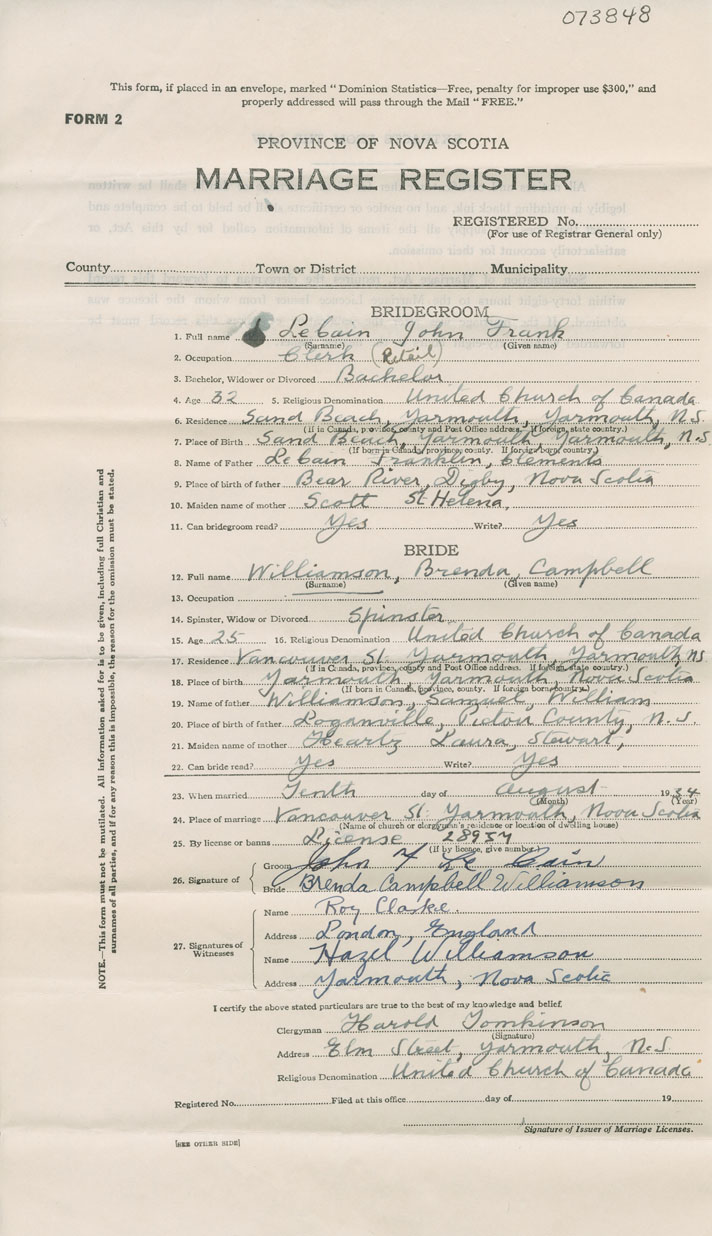 073848
This form, if placed in an envelope, marked "Dominion Statistics—Free, penalty for improper use $300," and
properly addressed will pass through the Mail "FREE."
FORM 2
PROVINCE OF NOVA SCOTIA
MARRIAGE REGISTER
REGISTERED No.
(For use of Registrar General only)
County Town or District Municipality
BRIDEGROOM
1. Full name LeCain John Frank
(Surname) (Given name)
2. Occupation Clerk (Retail)
3. Bachelor, Widower or Divorced Bachelor
4. Age 32 5. Religious Denomination United Church of Canada
6. Residence Sand Beach, Yarmouth, Yarmouth, N.S.
(If in Canada, province, county and Post Office address. If foreign, state country.)
7. Place of Birth Sand Beach, Yarmouth Yarmouth, N.S
(If born in Canada, province, county. If foreign born, country.)
8. Name of Father LeCain Franklin, Clements
9. Place of birth of father Bear River, Digby, Nova Scotia
10. Maiden name of mother Scott St Helena,
11. Can bridegroom read? Yes Write? Yes
BRIDE
12. Full name Williamson, Brenda, Campbell
(Surname) (Given name)
13. Occupation
14. Spinster, Widow or Divorced Spinster
15. Age 25 16. Religious Denomination United Church of Canada
17. Residence Vancouver St. Yarmouth, Yarmouth, NS
(If in Canada, province, county and Post Office address. If foreign, state country.)
18. Place of birth Yarmouth, Yarmouth, Nova Scotia
(If born in Canada, province, county. If foreign born, country.)
19. Name of father Williamson, Samuel, William
20. Place of birth of father Loganville, Pictou County, N.S.
21. Maiden name of mother Heartz Laura, Stewart,
22. Can bride read? Yes Write? Yes
23. When married Tenth day of August 1934
(Month) (Year)
24. Place of marriage Vancouver St. Yarmouth, Nova Scotia
(Name of church or clergyman's residence or location of dwelling house)
25. By license or banns License 28957
(If by licence, give number)
26. Signature of Groom John F Le Cain
Bride Brenda Campbell Williamson
27. Signatures of Witnesses
Name Roy Clarke.
Address London, England
Name Hazel Williamson
Address Yarmouth, Nova Scotia
I certify the above stated particulars are true to the best of my knowledge and belief.
Clergyman Harold Tomkinson
(Signature)
Address Elm Street, Yarmouth, N.S.
Religious Denomination United Church of Canada
Registered No. Filed at this office day of 19
Signature of Issuer of Marriage Licenses.
[SEE OTHER SIDE]
NOTE.—This form must not be mutilated. All information asked for is to be given, including full Christian and
surnames of all parties, and if for any reason this is impossible, the reason for the omission must be stated.